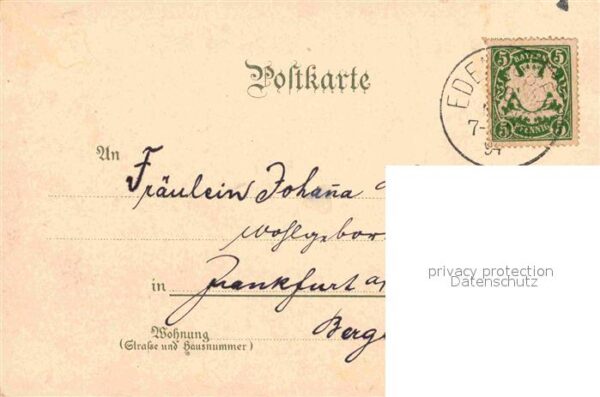 Postkarte
5 BAYERN 5
5 PFENNIG 5
EDE
7-
An Fräulein Johaña
Wohlgebor
in Frankfurt a/
Berge
Wohnung
(Straße und Hausnummer)
privacy protection
Datenschutz